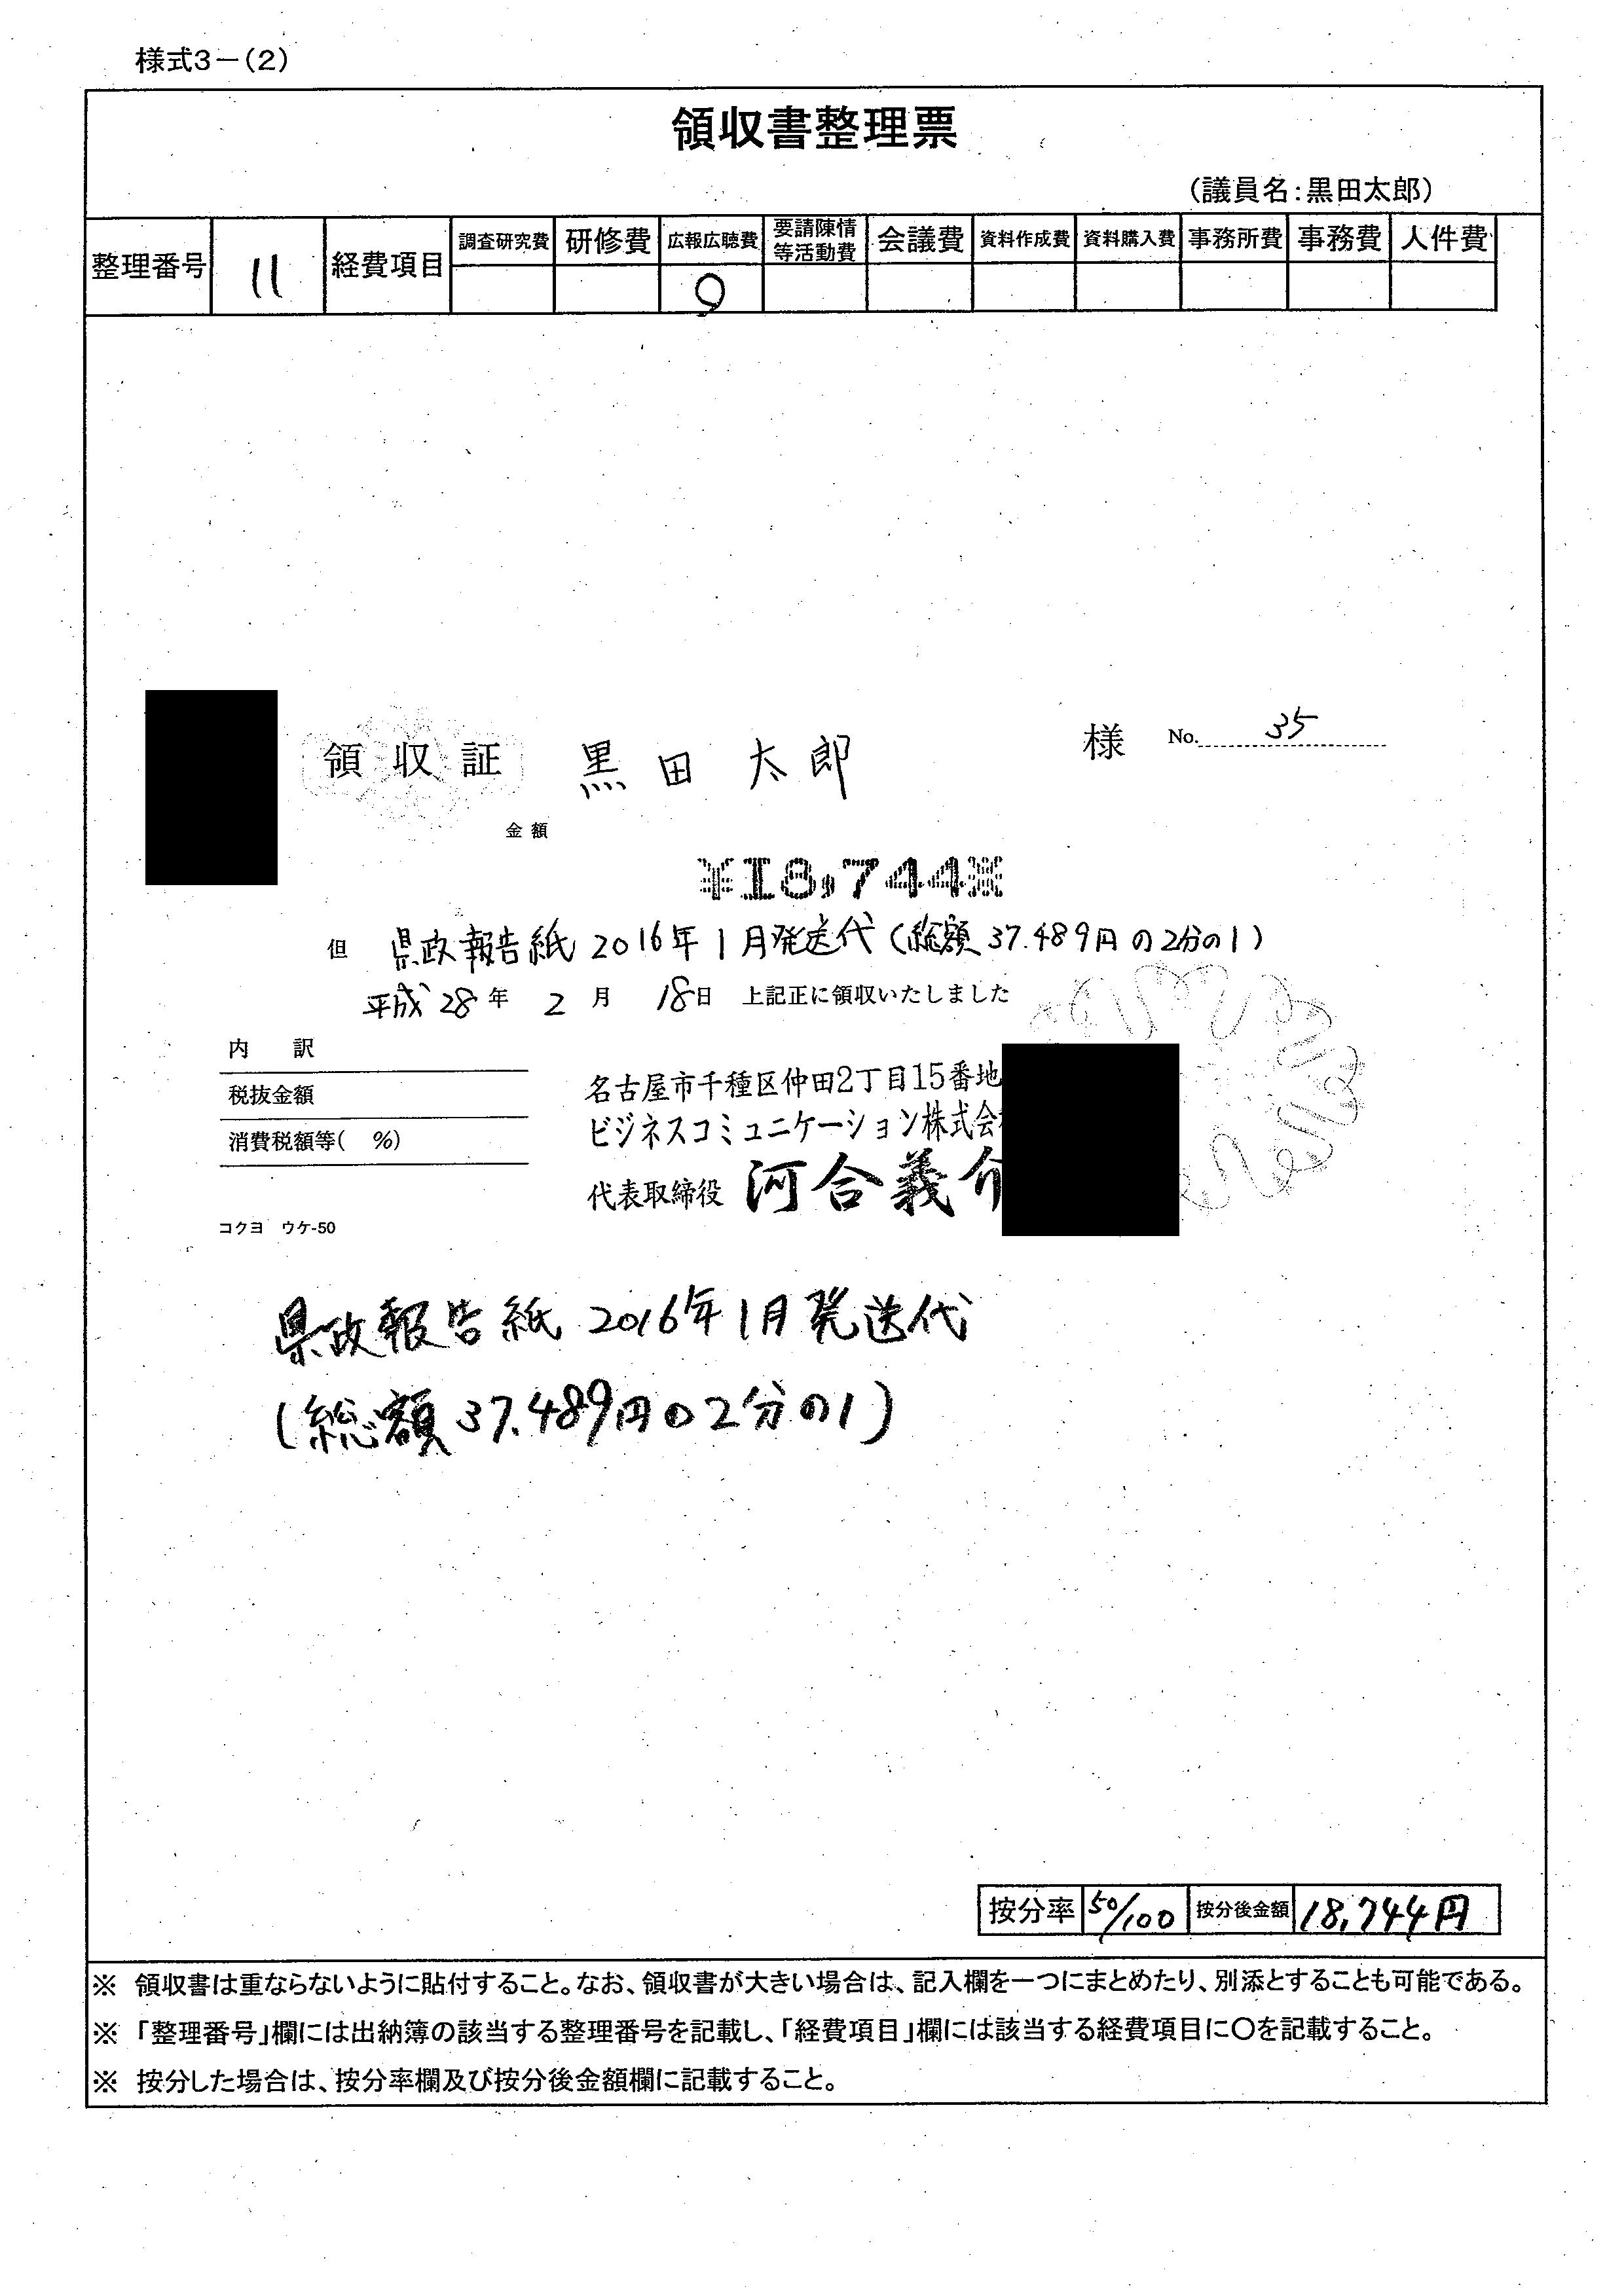 様式3－(2)
領収書整理票
(議員名:黒田太郎)
整理番号 11 経費項目 調査研究費 研修費 広報広聴費 要請陳情等活動費 会議費 資料作成費 資料購入費 事務所費 事務費 人件費
○
領収証 黒田太郎 様 No. 35
金額
¥18,744※
但 県政報告紙 2016年1月発送代(総額37.489円の2分の1)
平成28年 2月 18日 上記正に領収いたしました
内 訳
税抜金額
消費税額等( %)
コクヨ ウケ-50
名古屋市千種区仲田2丁目15番地
ビジネスコミュニケーション株式会
代表取締役 河合義介
県政報告紙 2016年1月発送代
(総額37.489円の2分の1)
按分率 50/100 按分後金額 18,744円
※ 領収書は重ならないように貼付すること。なお、領収書が大きい場合は、記入欄を一つにまとめたり、別添とすることも可能である。
※ 「整理番号」欄には出納簿の該当する整理番号を記載し、「経費項目」欄には該当する経費項目に○を記載すること。
※ 按分した場合は、按分率欄及び按分後金額欄に記載すること。